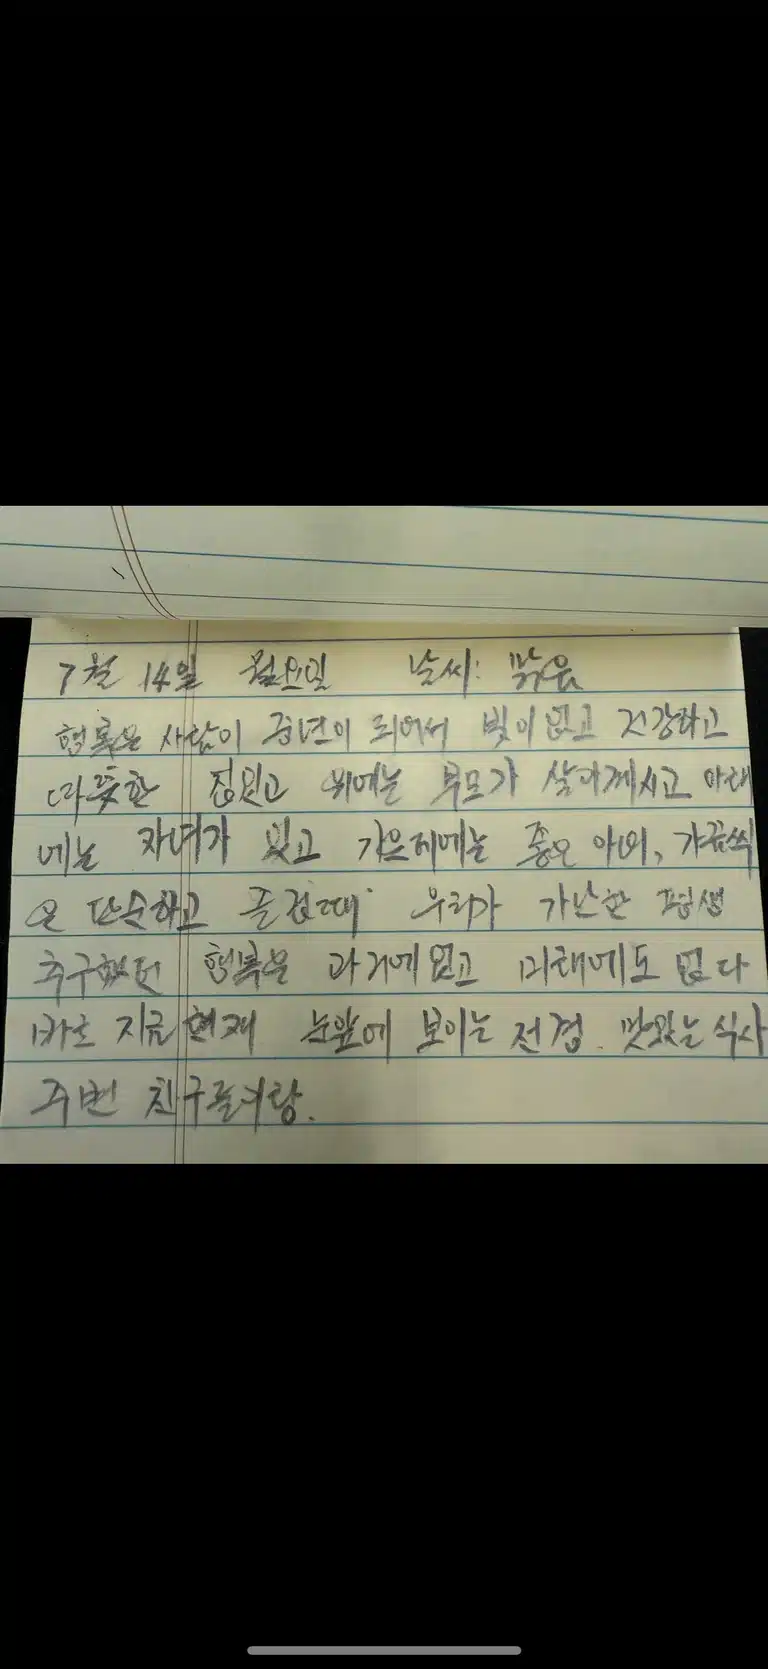 7월 14일 월요일 날씨: 맑음
행복은 사람이 중년이 되어서 빚이 없고 건강하고
따뜻한 집있고 위에는 부모가 살아계시고 아래
에는 자녀가 있고 가운데에는 좋은 아내, 가끔씩
은 단순하고 즐겁때 우리가 가난한 평생
추구했던 행복은 과거에 없고 미래에도 없다
바로 지금 현재 눈앞에 보이는 전경. 맛있는 식사
주변 친구들이랑.